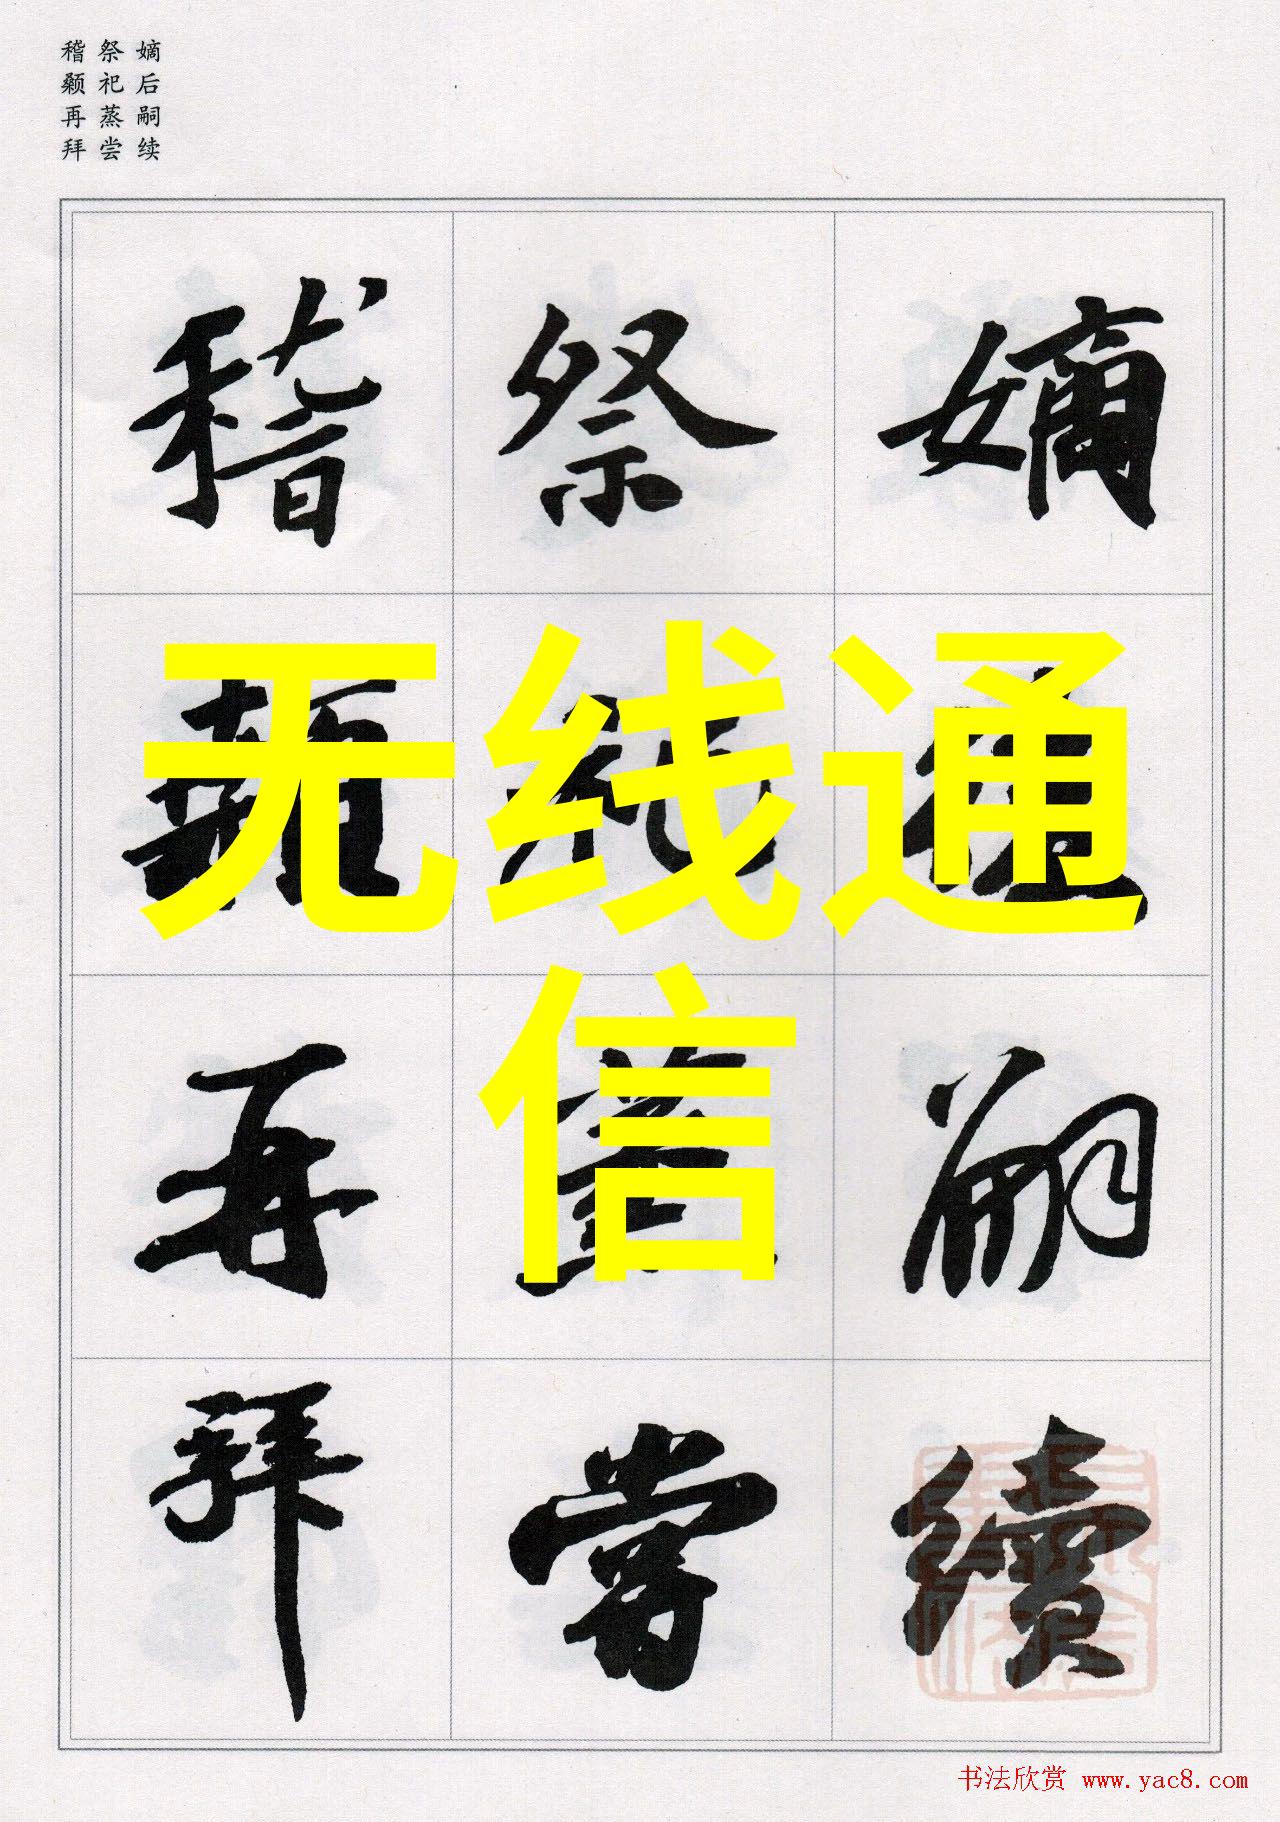 嫡后嗣续
祭祀蒸尝
稽颡再拜
嫡後嗣續
祭祀蒸嘗
稽顙再拜
无线通
信
书法欣赏 www.yac8.com